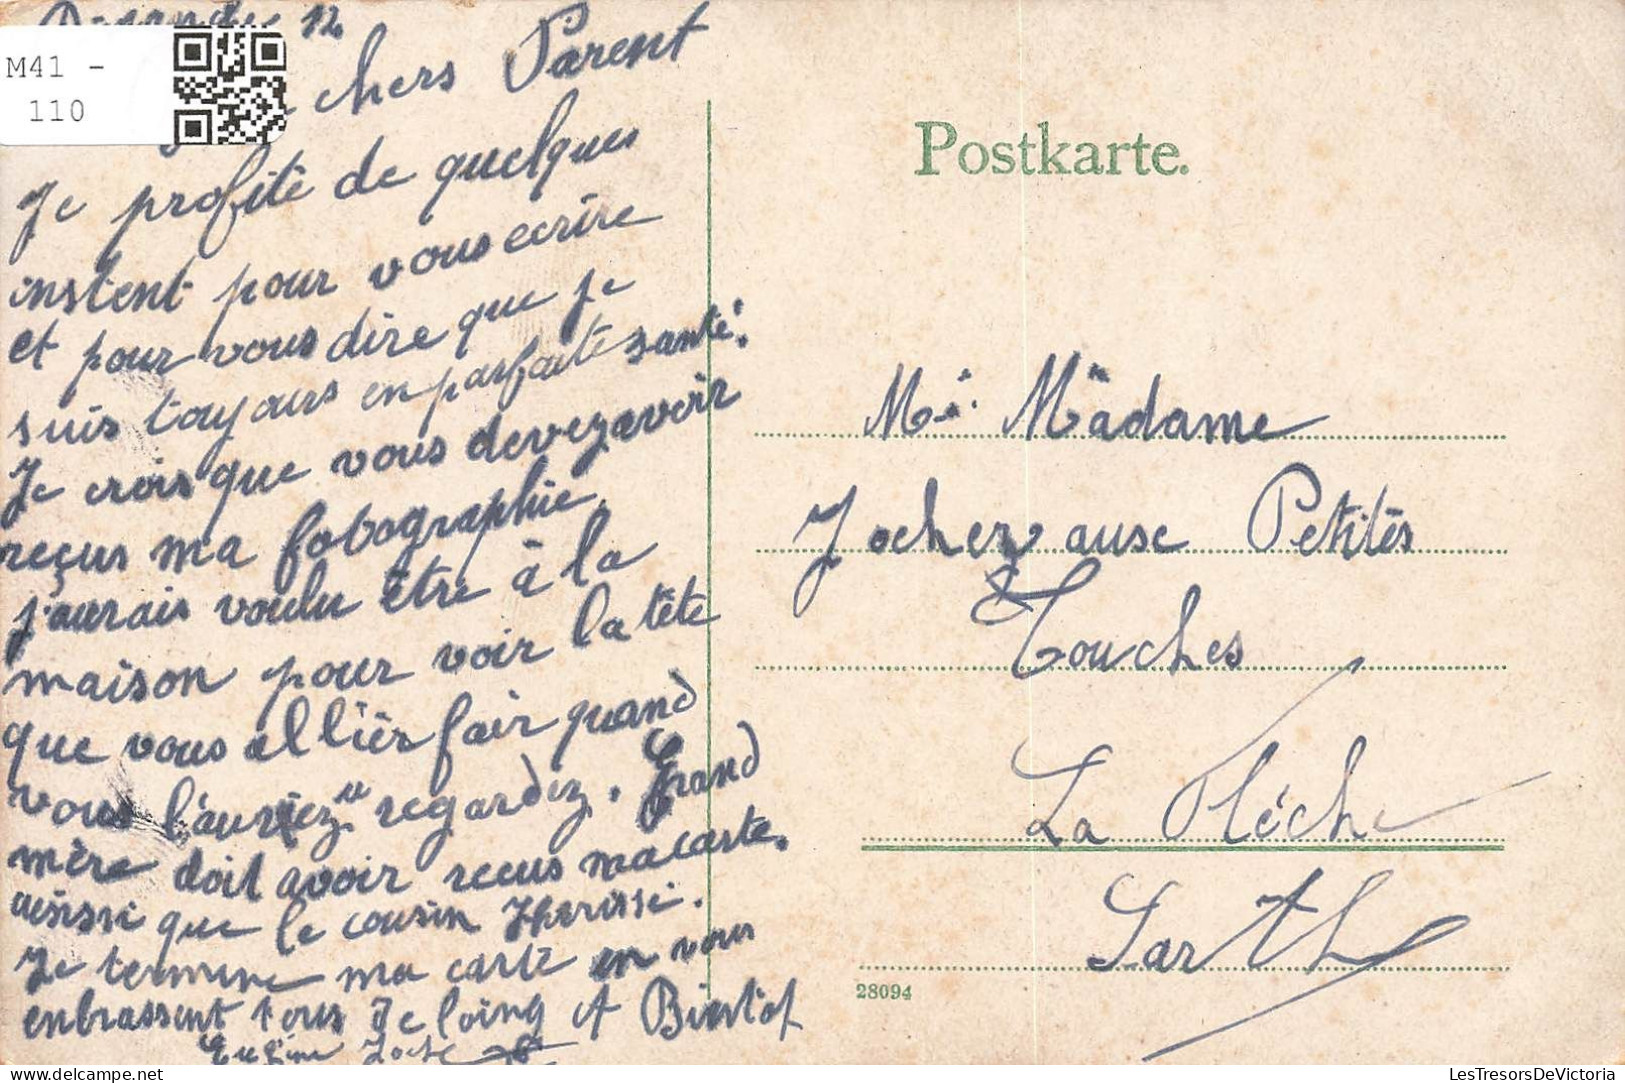 12
M41 -
110
chers Parent
Je profite de quelques
instent pour vous ecrire
et pour vous dire que je
suis toujours en parfaite santé.
Je crois que vous devez avoir
reçus ma fotographie
j'aurais voulu être à la
maison pour voir la tête
que vous allier fair quand
vous l'auriez regardez. Grand
mère doit avoir recus ma carte.
aissi que le cousin Herissé.
Je termine ma carte en vous
enbrassent tous de loing et Bientot
Postkarte.
Mr Madame
Jocher ause Petites
Touches
La Flèche
Sarth
28094
delcampe.net
LesTresorsDeVictoria